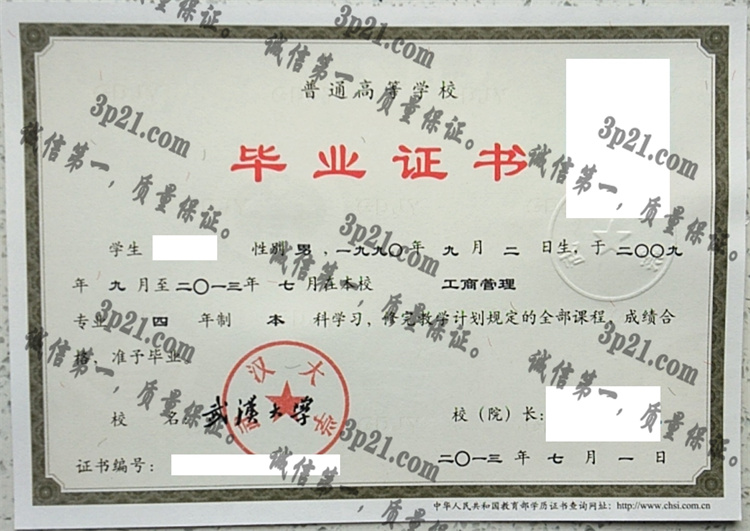 普通高等学校
毕业证书
学生 性别 男,一九九〇年 九 月 二 日生,于二〇〇九
年 九 月至二〇一三年 七 月在本校 工商管理
专业 四 年制 本 科学习,修完教学计划规定的全部课程,成绩合
格,准予毕业。
武汉大学
校 名: 武漢大学
校(院)长:
证书编号:
二〇一三年 七 月 一 日
中华人民共和国教育部学历证书查询网址:http://www.chsi.com.cn
3p21.com
诚信第一,质量保证。
3p21.com
诚信第一,质量保证。
3p21.com
诚信第一,质量保证。
3p21.com
诚信第一,质量保证。
3p21.com
诚信第一,质量保证。
3p21.com
诚信第一,质量保证。
3p21.com
诚信第一,质量保证。
3p21.com
诚信第一,质量保证。